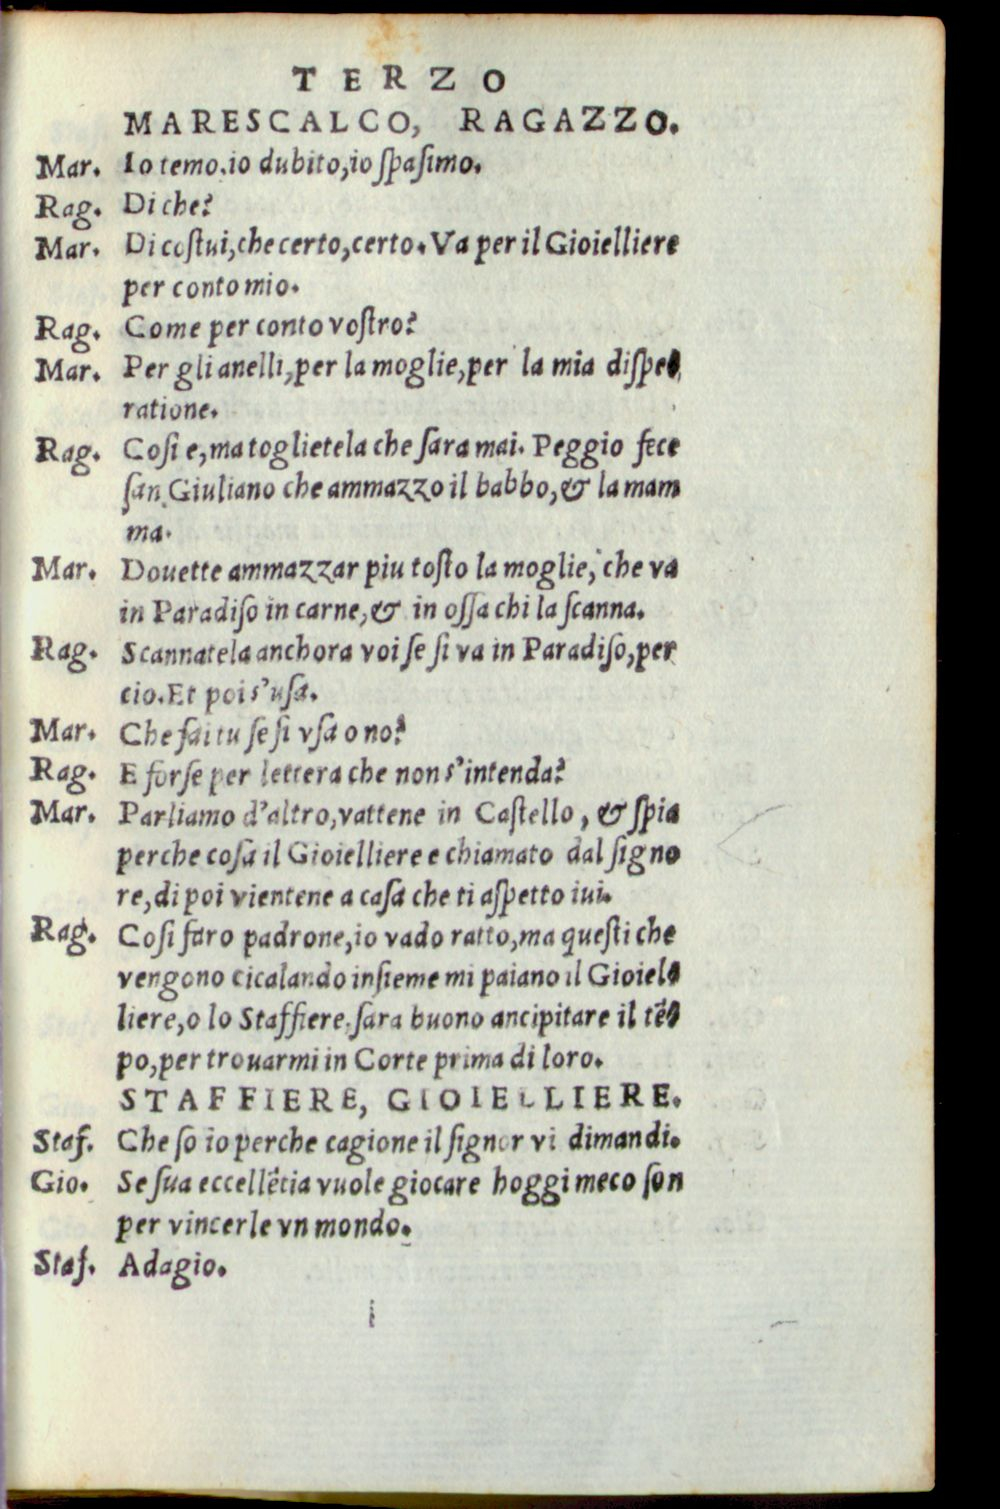 TERZO
MARESCALCO, RAGAZZO.
Mar. Io temo, io dubito, io ſpaſimo.
Rag. Di che?
Mar. Di coſtui, che certo, certo. Va per il Gioielliere
per conto mio.
Rag. Come per conto voſtro?
Mar. Per gli anelli, per la moglie, per la mia diſpe-
ratione.
Rag. Coſi e, ma toglietela che ſara mai. Peggio fece
ſan Giuliano che ammazzo il babbo, & la mam
ma.
Mar. Douette ammazzar piu toſto la moglie, che va
in Paradiſo in carne, & in oſſa chi la ſcanna.
Rag. Scannatela anchora voi ſe ſi va in Paradiſo, per
cio. Et poi s'uſa.
Mar. Che ſai tu ſe ſi vſa o no?
Rag. E forſe per lettera che non s'intenda?
Mar. Parliamo d'altro, vattene in Caſtello, & ſpia
perche coſa il Gioielliere e chiamato dal ſigno
re, di poi vientene a caſa che ti aſpetto iui.
Rag. Coſi faro padrone, io vado ratto, ma queſti che
vengono cicalando inſieme mi paiano il Gioiel-
liere, o lo Staffiere, ſara buono ancipitare il tē-
po, per trouarmi in Corte prima di loro.
STAFFIERE, GIOIELLIERE.
Staf. Che ſo io perche cagione il ſignor vi dimandi.
Gio. Se ſua eccellētia vuole giocare hoggi meco ſon
per vincerle vn mondo.
Staf. Adagio.
i